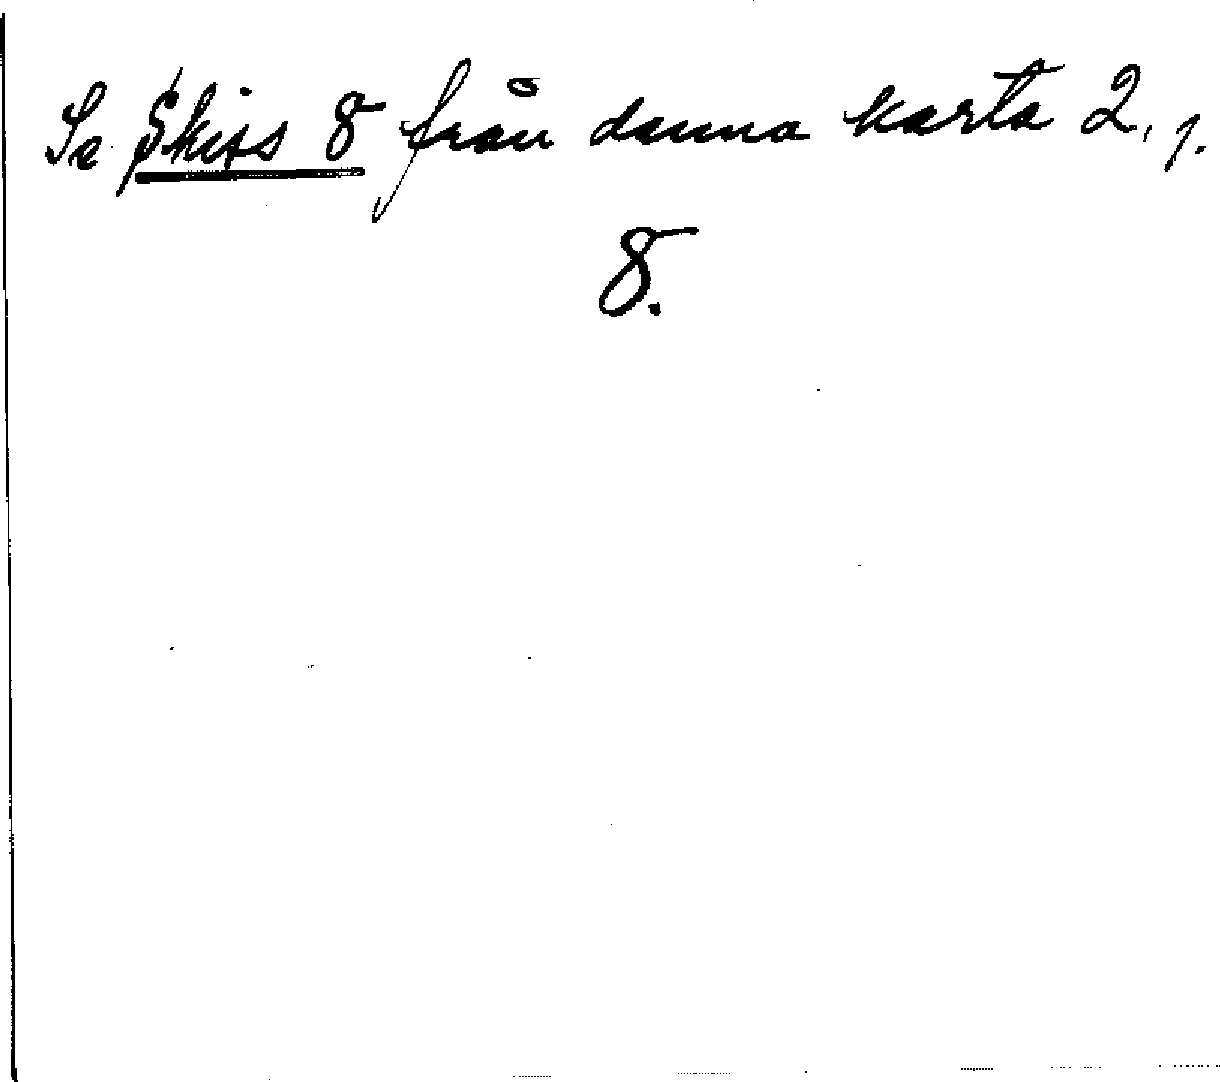 Se Skiss 8 från denna karta 2, 1.
8.